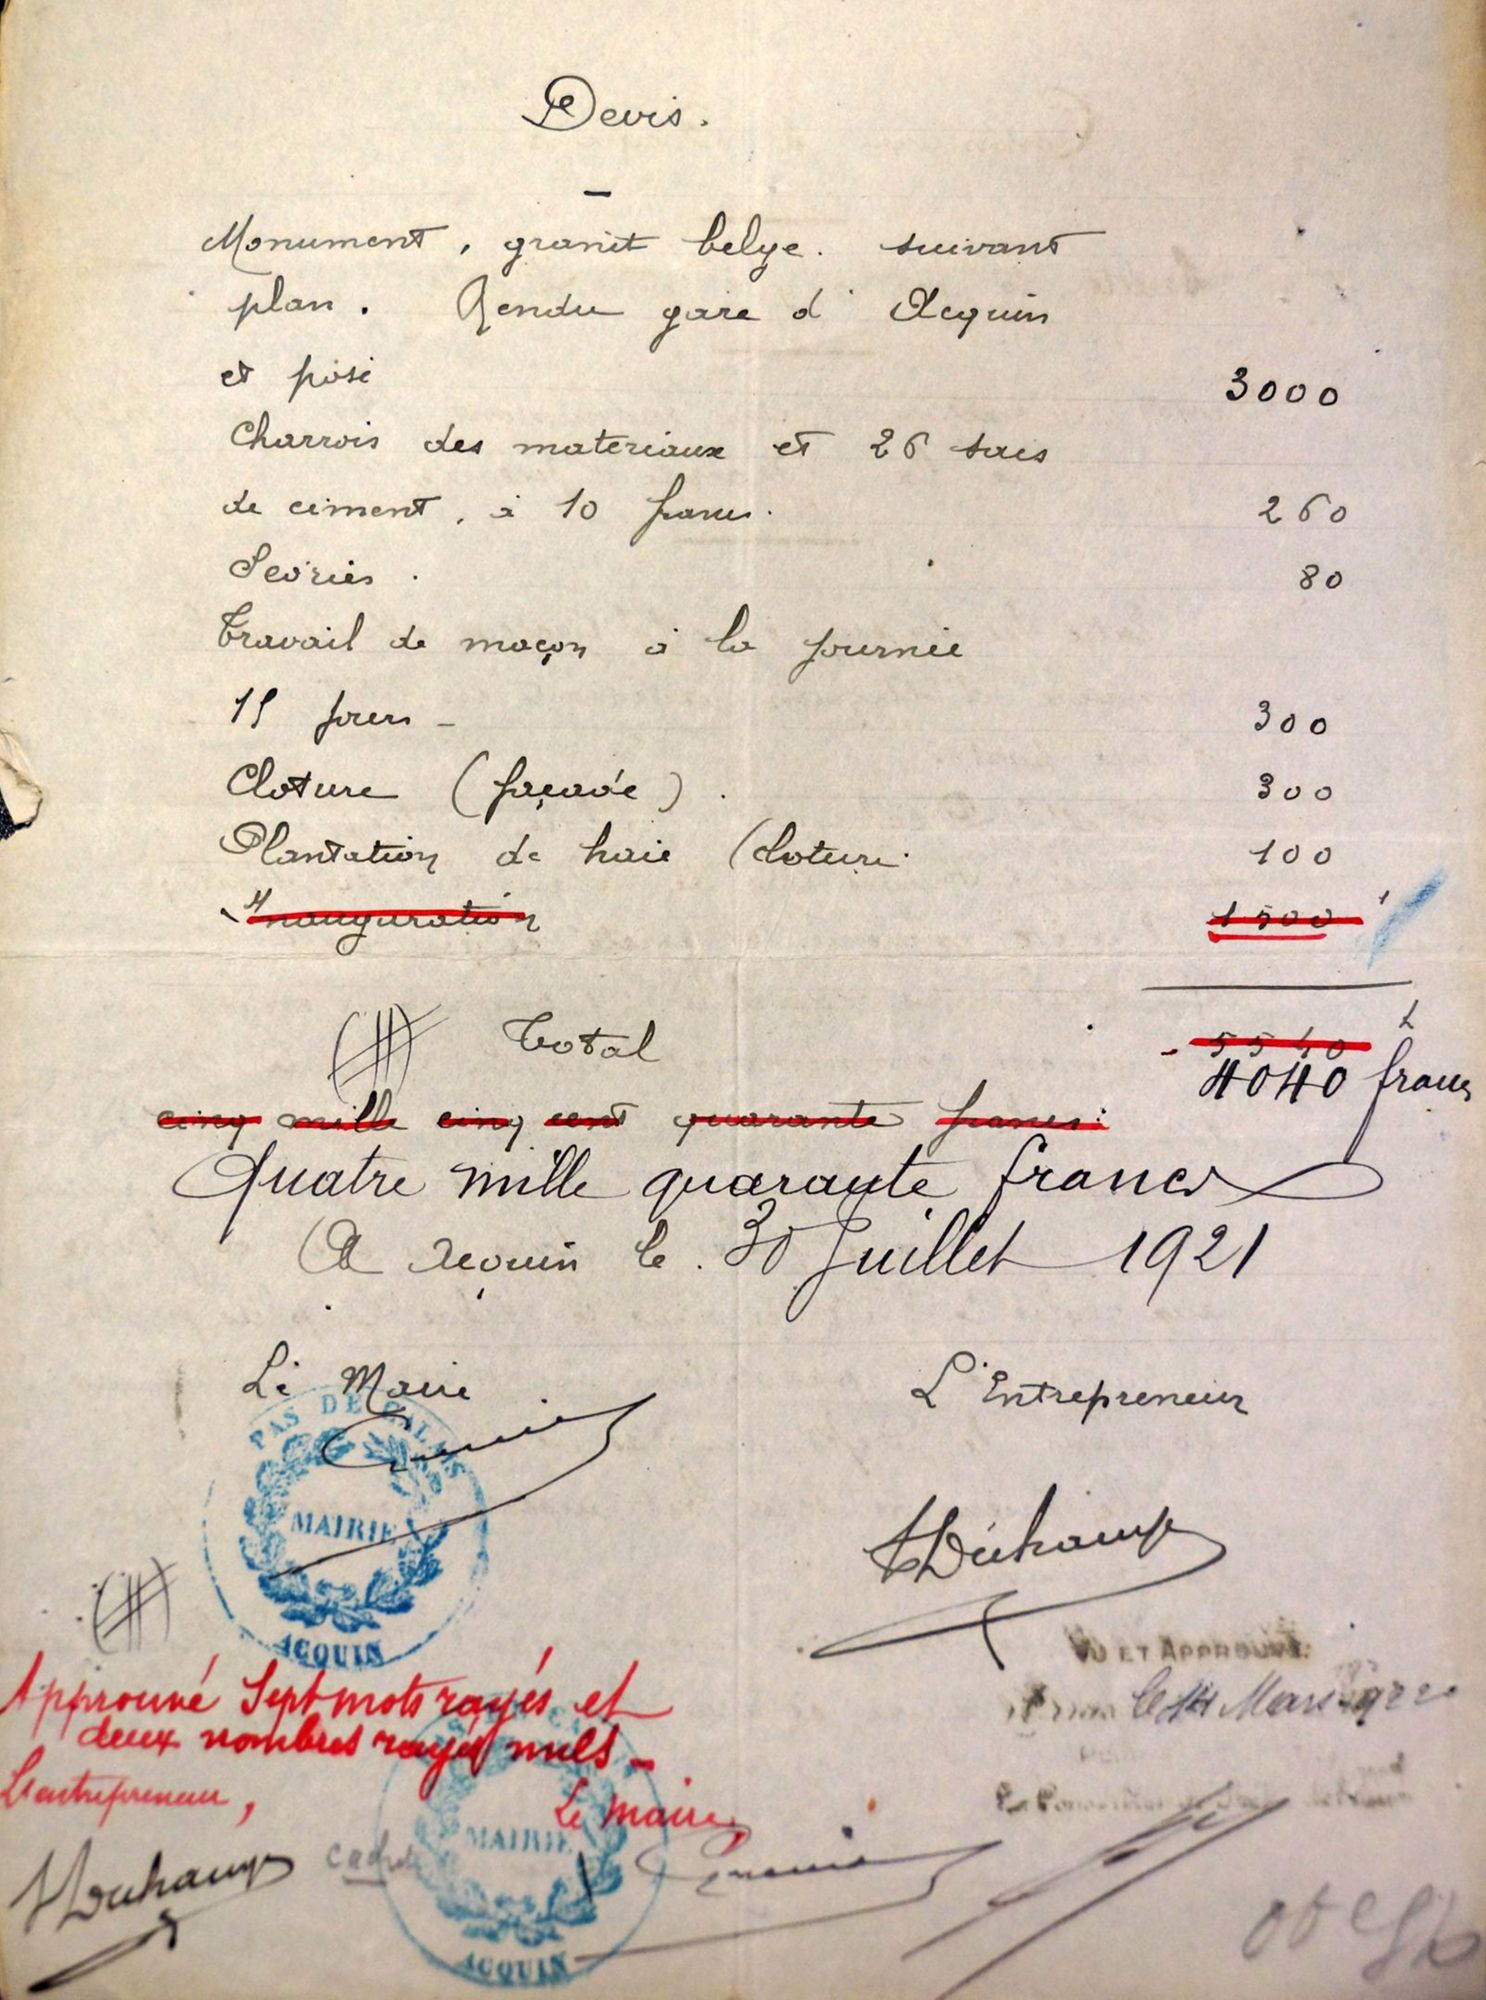 Devis.
Monument, granit belge. suivant
plan. Rendu gare d'Acquin
et posé 3000
Charrois des materiaux et 26 sacs
de ciment, à 10 francs. 260
80
Travail de maçon à la journée
15 jours - 300
Cloture (façade). 300
Plantation de haie (cloture. 100
Inauguration 1500
Total 5540
4040 francs
cinq mille cinq cent quarante francs.
Quatre mille quarante francs
A Acquin le 30 Juillet 1921
Le Maire L'Entrepreneur
PAS DE CALAIS
MAIRIE
ACQUIN
Duhamp
VU ET APPROUVÉ
le 14 Mars 1922
Approuvé Sept mots rayés et
deux nombres rayés nuls -
L'entrepreneur, Le Maire,
MAIRIE
Duhamp
ACQUIN